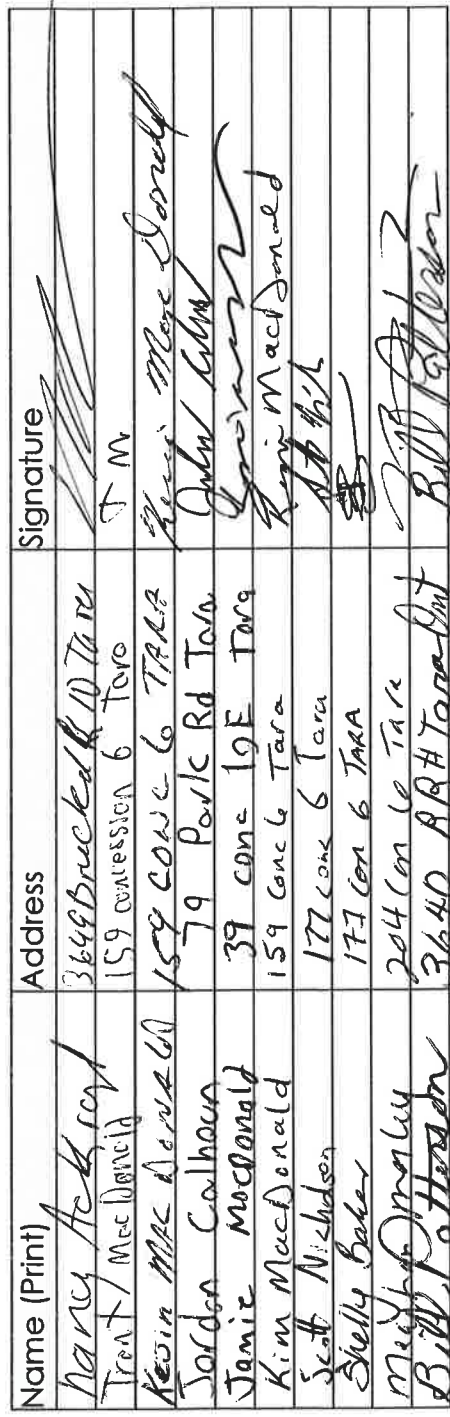 Name (Print) Address Signature
Nancy Ackroyd 3649 Bruce Rd 10 Tara
Trent MacDonald 159 concession 6 Tara T M
Kevin MAC DONALD 159 CONC 6 TARA Kevin MacDonald
Jordan Calhoun 79 Park Rd Tara
Jamie MacDonald 39 conc 10E Tara
Kim MacDonald 159 Conc 6 Tara Kim MacDonald
Scott Nicholson 177 conc 6 Tara
Shelly Baker 177 Con 6 TARA
204 Con 6 Tara
Bill Patterson 3640 RR# Tara Ont Bill Patterson